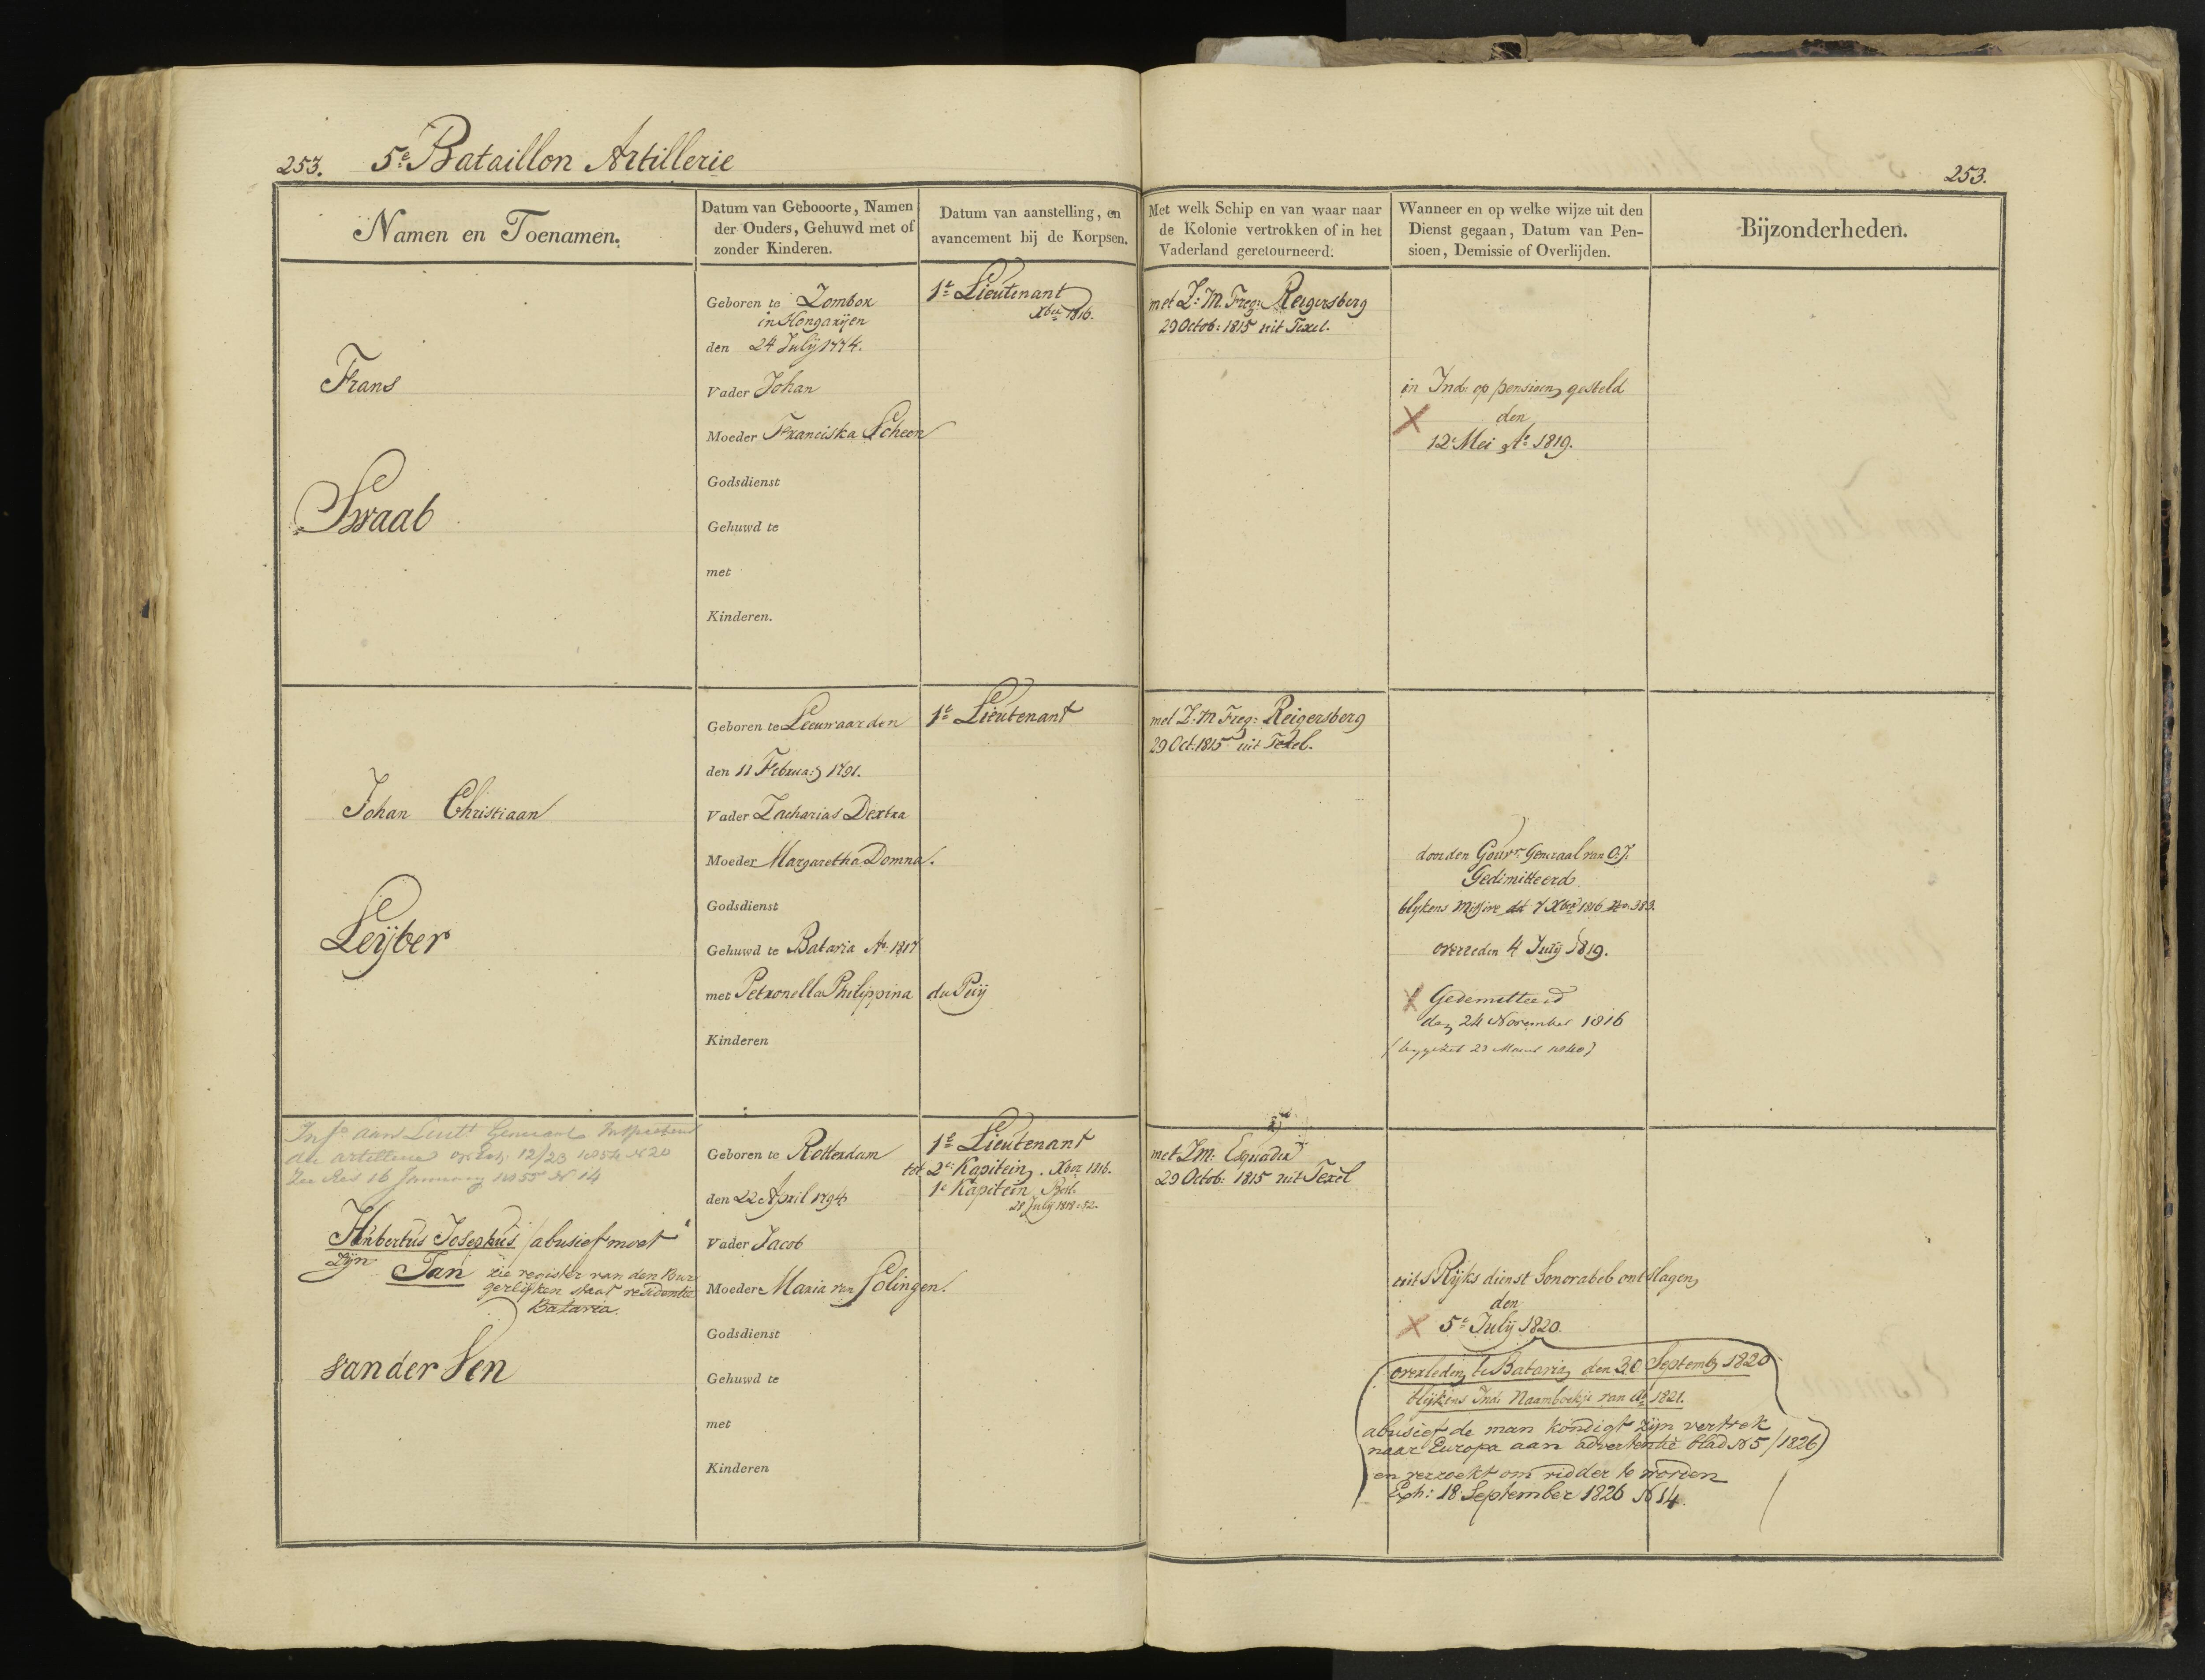 253. 5e Bataillon Artillerie
253.
Namen en Toenamen.
Datum van Gebooorte, Namen
der Ouders, Gehuwd met of
zonder Kinderen.
Datum van aanstelling, en
avancement bij de Korpsen.
Met welk Schip en van waar naar
de Kolonie vertrokken of in het
Vaderland geretourneerd.
Wanneer en op welke wijze uit den
Dienst gegaan, Datum van Pen-
sioen, Demissie of Overlijden.
Bijzonderheden.
Frans
Swaab
Geboren te Zombor
in Hongarijen
den 24 Julij 1774.
Vader Johan
Moeder Franciska Scheen
Godsdienst
Gehuwd te
met
Kinderen.
1e Lieutenant
Xber 1816.
met Z: M. Freg: Reigersberg
29 Octob: 1815 uit Texel.
in Ind: op pensioen gesteld
den
12e Mei Ao 1819.
Johan Christiaan
Leijber
Geboren te Leeuwaarden
den 11 Februa:y 1791.
Vader Zacharias Dextra
Moeder Margaretha Domna.
Godsdienst
Gehuwd te Batavia Ao 1817
met Petronella Philippina du Puij
Kinderen
1e Lieutenant
met Z: M Freg: Reigersberg
29 Oct. 1815 uit Texel.
door den Gouvr Generaal van O:I.
Gedimitteerd
blykens Missive dd 7 Xber 1816 No. 383.
overleden 4 Julij 1819.
X Gedemitteerd
den 24 November 1816
23 1840)
aan Luitt Generaal Inspecteur
der Artillerie 12/23 1854 N 20
Zie Res 16 January 1855 N 14
Hubertus Josephus / abusief moet
zijn Jan zie register van den Bur
gerlijken staat residentie
Batavia.
van der Sen
Geboren te Rotterdam
den 22 April 1794
Vader Jacob
Moeder Maria van Solingen.
Godsdienst
Gehuwd te
met
Kinderen
1e Lieutenant
tot 2e Kapitein. Xber 1816.
1e Kapitein Besl.
28 July 1818 52.
met Zm: Esquader
29 Octob: 1815 uit Texel
uit s Rijks dienst honorabel ontslagen
den
X 5e Julij 1820.
overleden te Batavia den 30 Septemb 1820
blijkens Ind: Naamboekje van Ao 1821.
abusief de man kondigt zijn vertrek
naar Europa aan advertentie blad N 5 / 1826)
en verzoekt om ridder te worden
Exh: 18 September 1826 N 14.